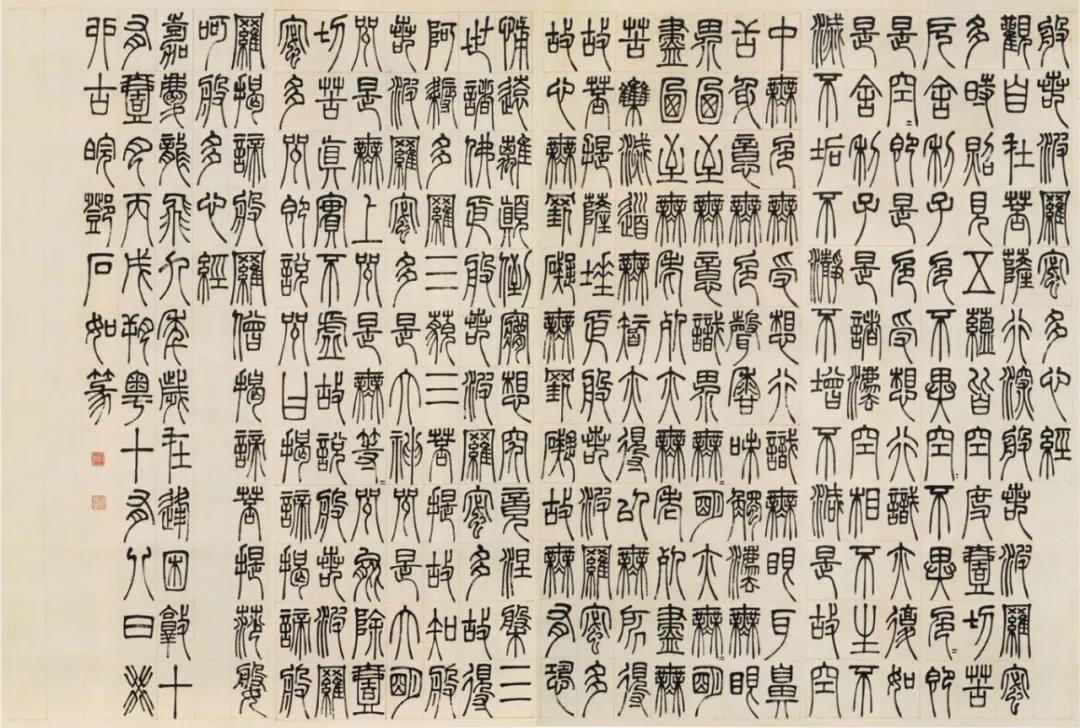 般若波羅蜜多心經
觀自在菩薩行深般若波羅蜜
多時照見五蘊皆空度壹切苦
厄舍利子色不異空=不異色=即
是空=即是色受想行識亦復如
是舍利子是諸法空相不生不
滅不垢不淨不增不減是故空
中無色無受想行識無眼耳鼻
舌身意無色聲香味觸法無眼
界乃至無意識界無=明亦無=明
盡乃至無老死亦無老死盡無
苦集滅道無智亦得以無所得
故菩提薩埵依般若波羅蜜多
故心無罣礙無罣礙故無有恐
怖遠離顛倒夢想究竟涅槃三
世諸佛依般若波羅蜜多故得
阿耨多羅三藐三菩提故知般
若波羅蜜多是大神咒是大明
咒是無上咒是無等=咒能除壹
切苦真實不虛故說般若波羅
蜜多咒即說咒曰揭諦揭諦般
羅揭諦般羅僧揭諦菩提莎婆
呵般多心經
嘉慶龍飛九年歲在逢困敦十
有壹月丙戌朔粵十有八日癸
卯古皖鄧石如篆